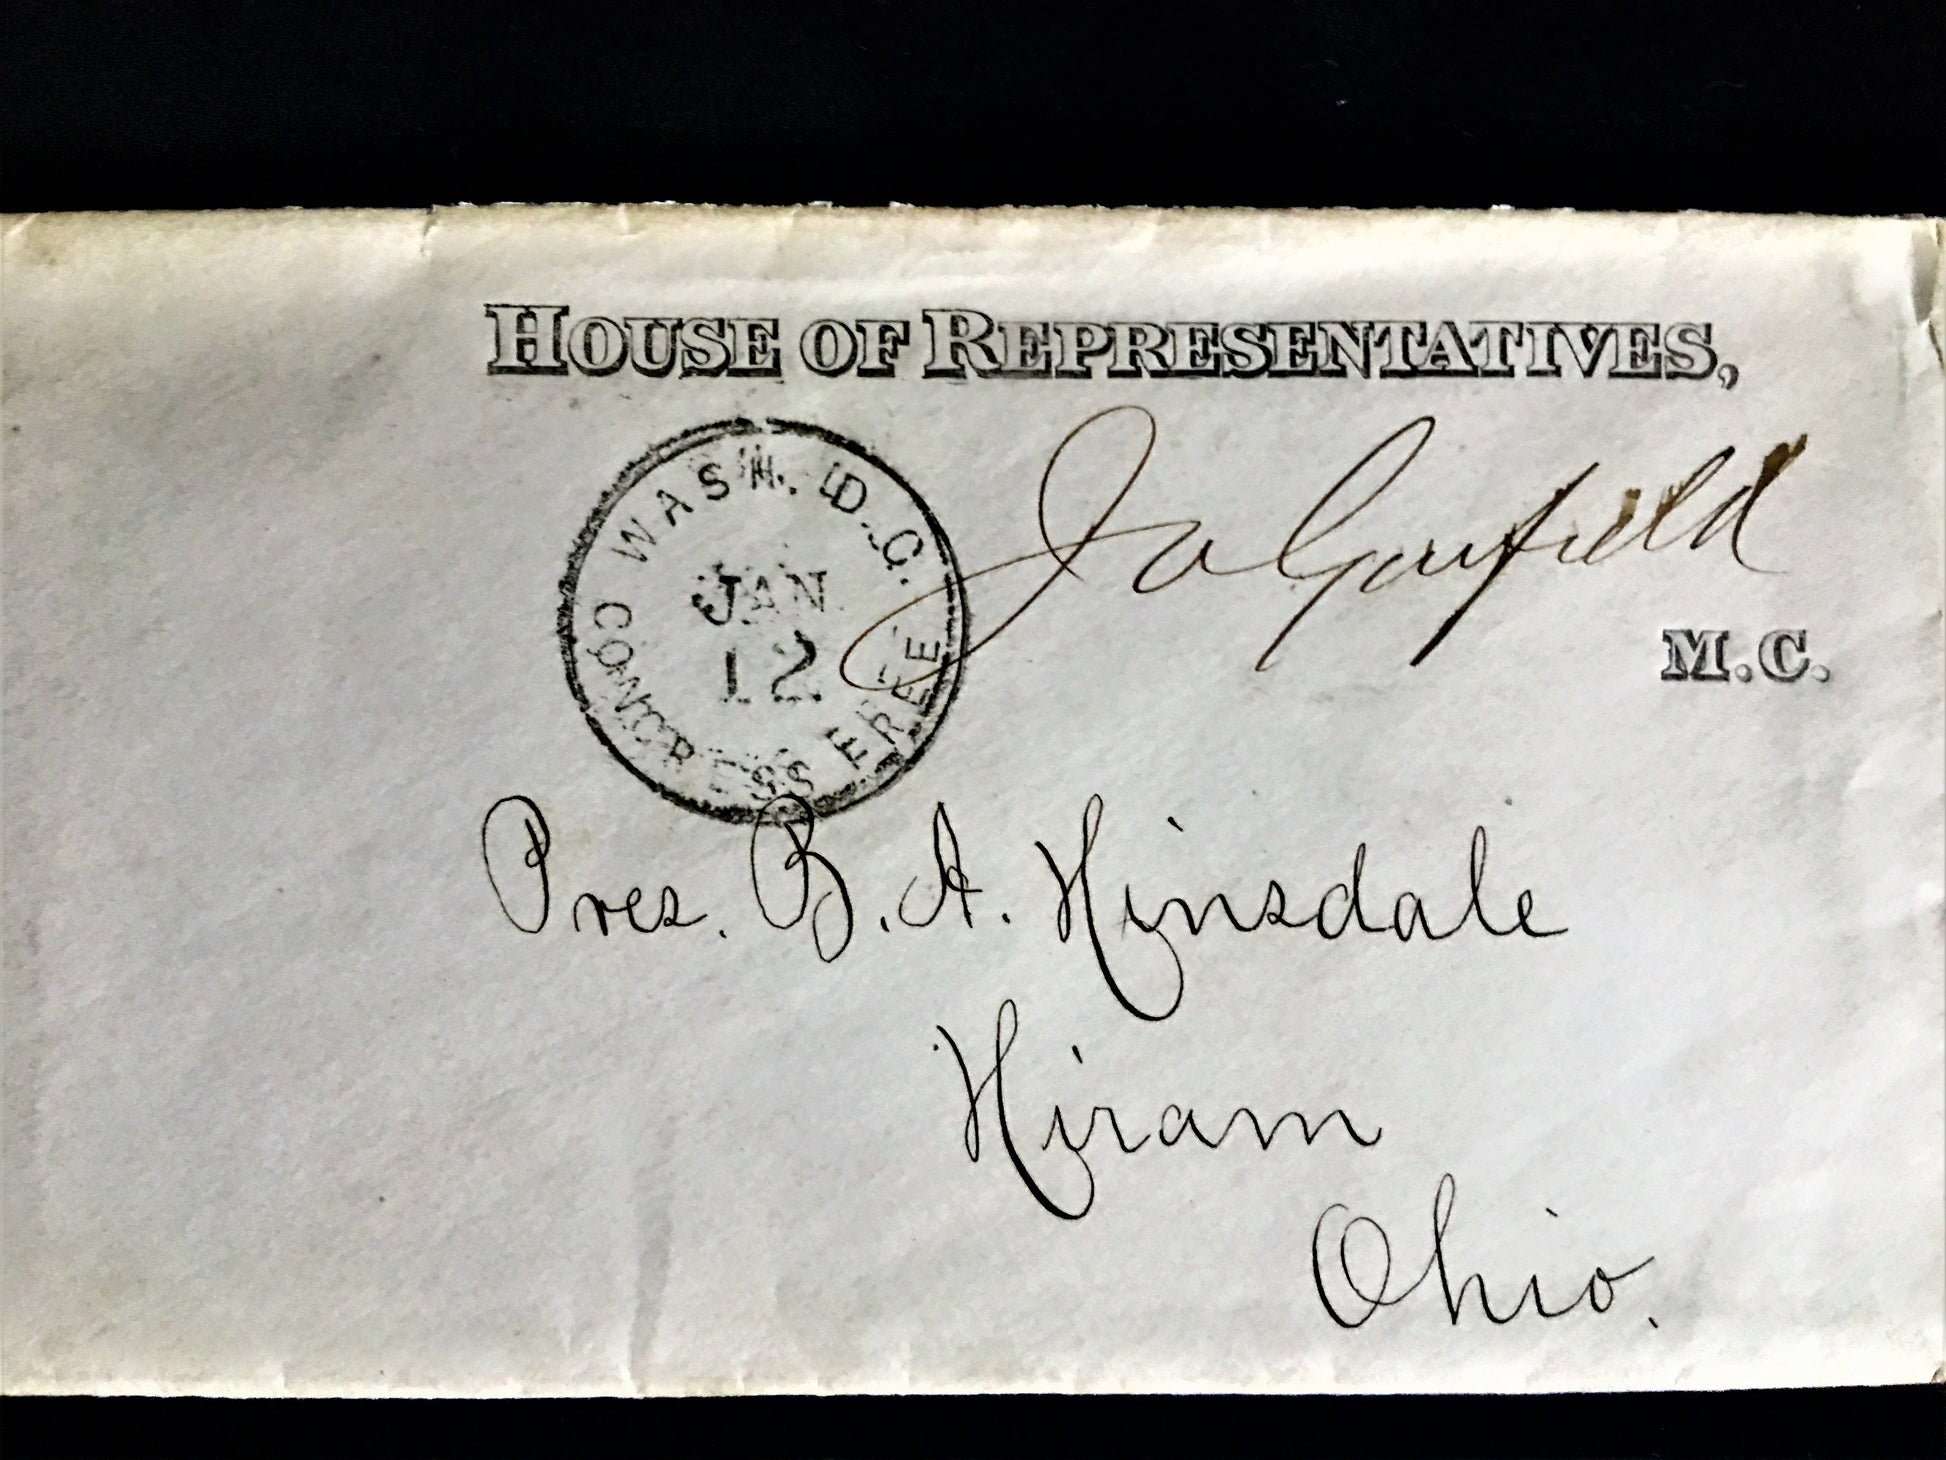 HOUSE OF REPRESENTATIVES,
WASH. D.C.
JAN.
12
CONGRESS FREE
J A Garfield
M.C.
Pres. B. A. Hinsdale
Hiram
Ohio.